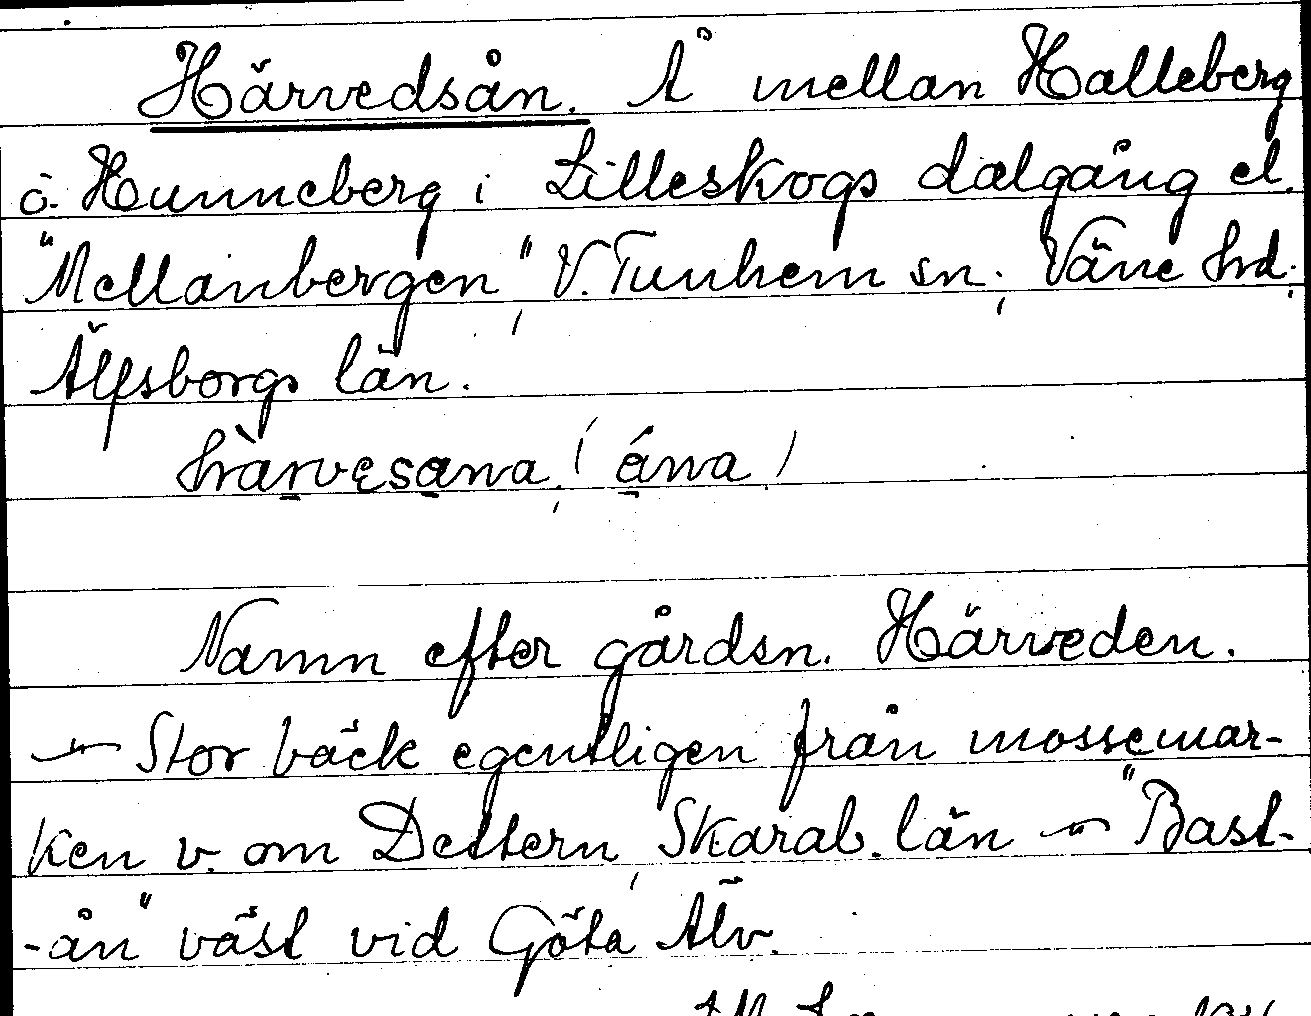 Härvedsån. Å mellan Halleberg
o. Hunneberg i Lilleskogs dalgång el.
"Mellanbergen", V. Tunhem sn., Väne hd.,
Älfsborgs län.
hàrvesana, (ána)
Namn efter gårdsn. Härveden.
— Stor bäck egentligen från mossemar-
ken v. om Dettern, Skarab. län — "Bast-
-ån" väst vid Göta Älv.